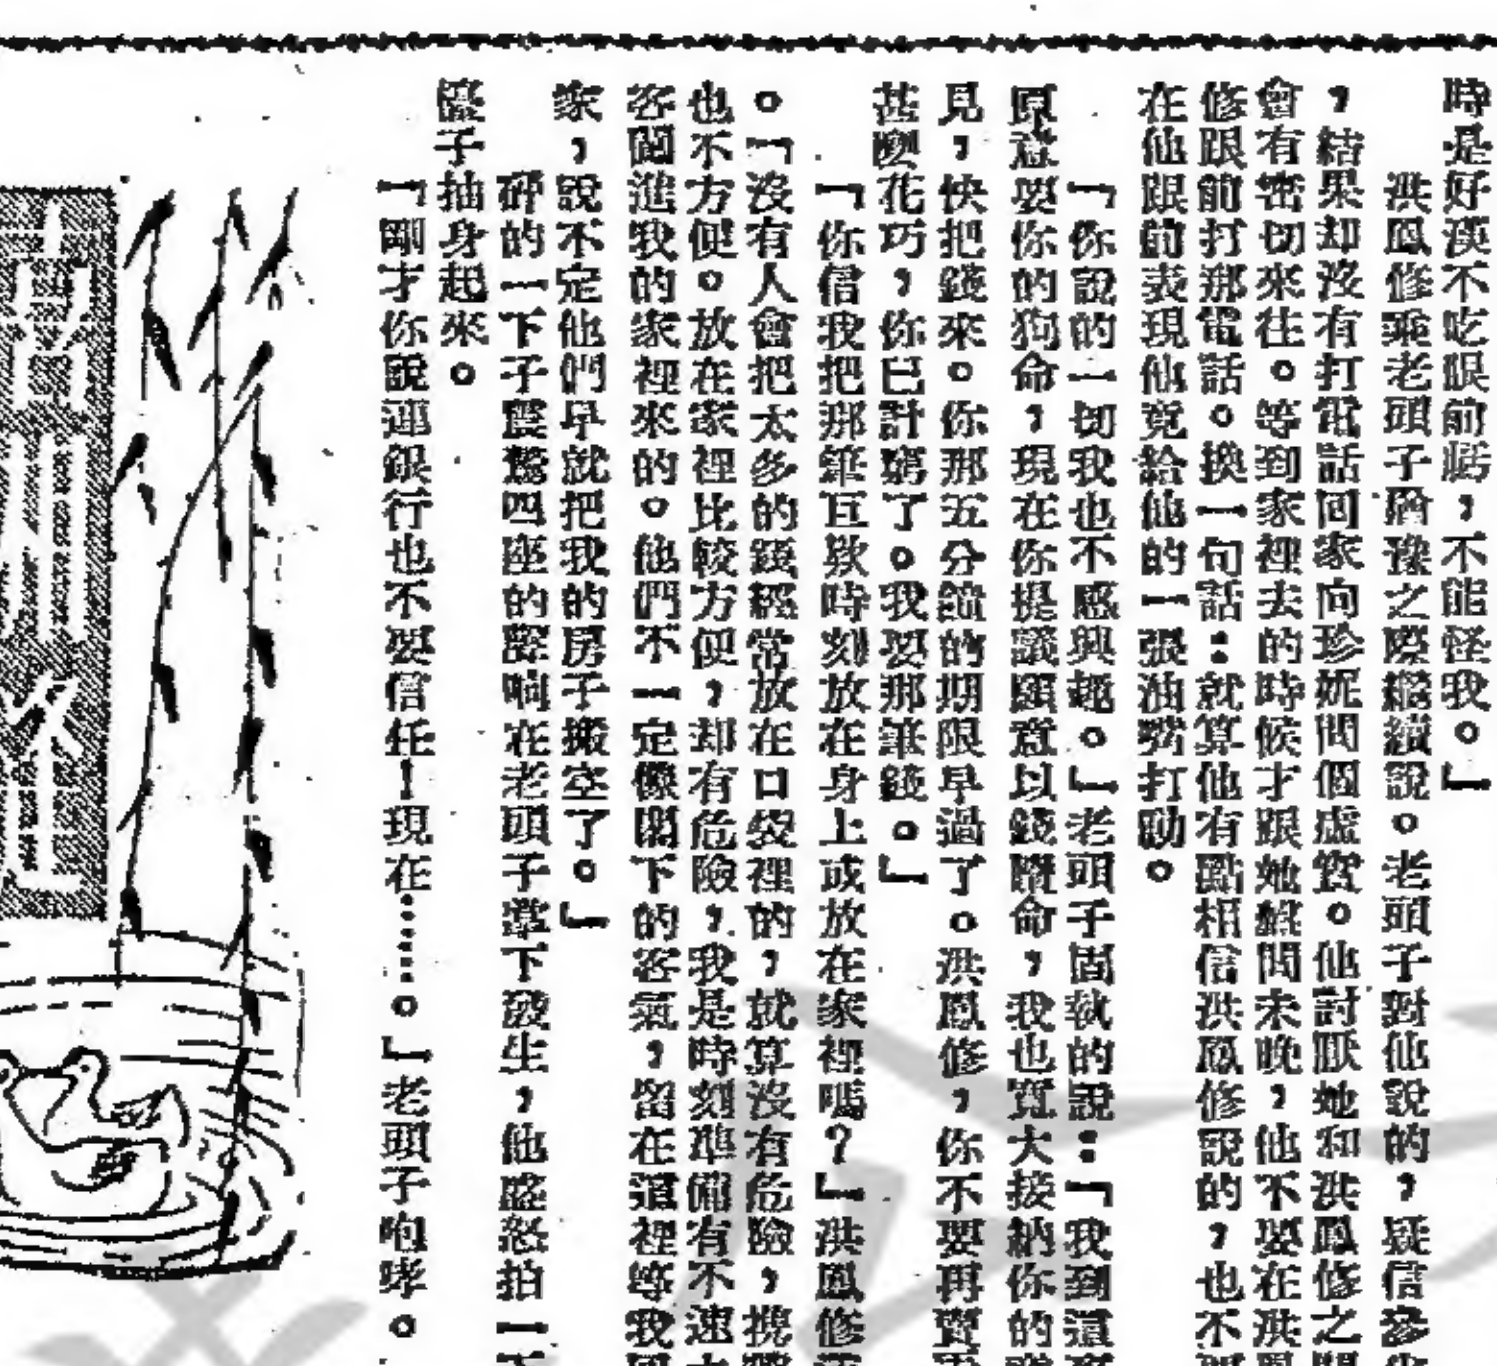 時是好漢不吃眼前虧，不能怪我。」
洪鳳修乘老頭子躊躇之際繼續說。老頭子對他說的，疑信參
，結果却沒有打電話回家向珍妮問個虛實。他討厭她和洪鳳修之
會有密切來往。等到家裡去的時候才跟她盤問未晚，他不要在洪鳳
修跟前打那電話。換一句話：就算他有點相信洪鳳修說的，也不
在他跟前表現他竟給他的一張油嘴打動。
「你說的一切我也不感興趣。」老頭子固執的說：「我到這
原意要你的狗命，現在你提議願意以錢贖命，我也寬大接納你的
見，快把錢來。你那五分鐘的期限早過了。洪鳳修，你不要再賣
甚麼花巧，你已計窮了。我要那筆錢。」
「你信我把那筆巨欵時刻放在身上或放在家裡嗎？」洪鳳修
。「沒有人會把太多的錢經常放在口袋裡的，就算沒有危險，攜
也不方便。放在家裡比較方便，却有危險，我是時刻準備有不速
客闖進我的家裡來的。他們不一定像閣下的客氣，留在這裡等我
家，說不定他們早就把我的房子搬空了。」
砰的一下子震驚四座的聲响在老頭子掌下發生，他盛怒拍一下
檯子抽身起來。
「剛才你說連銀行也不要信任！現在……。」老頭子咆哮。